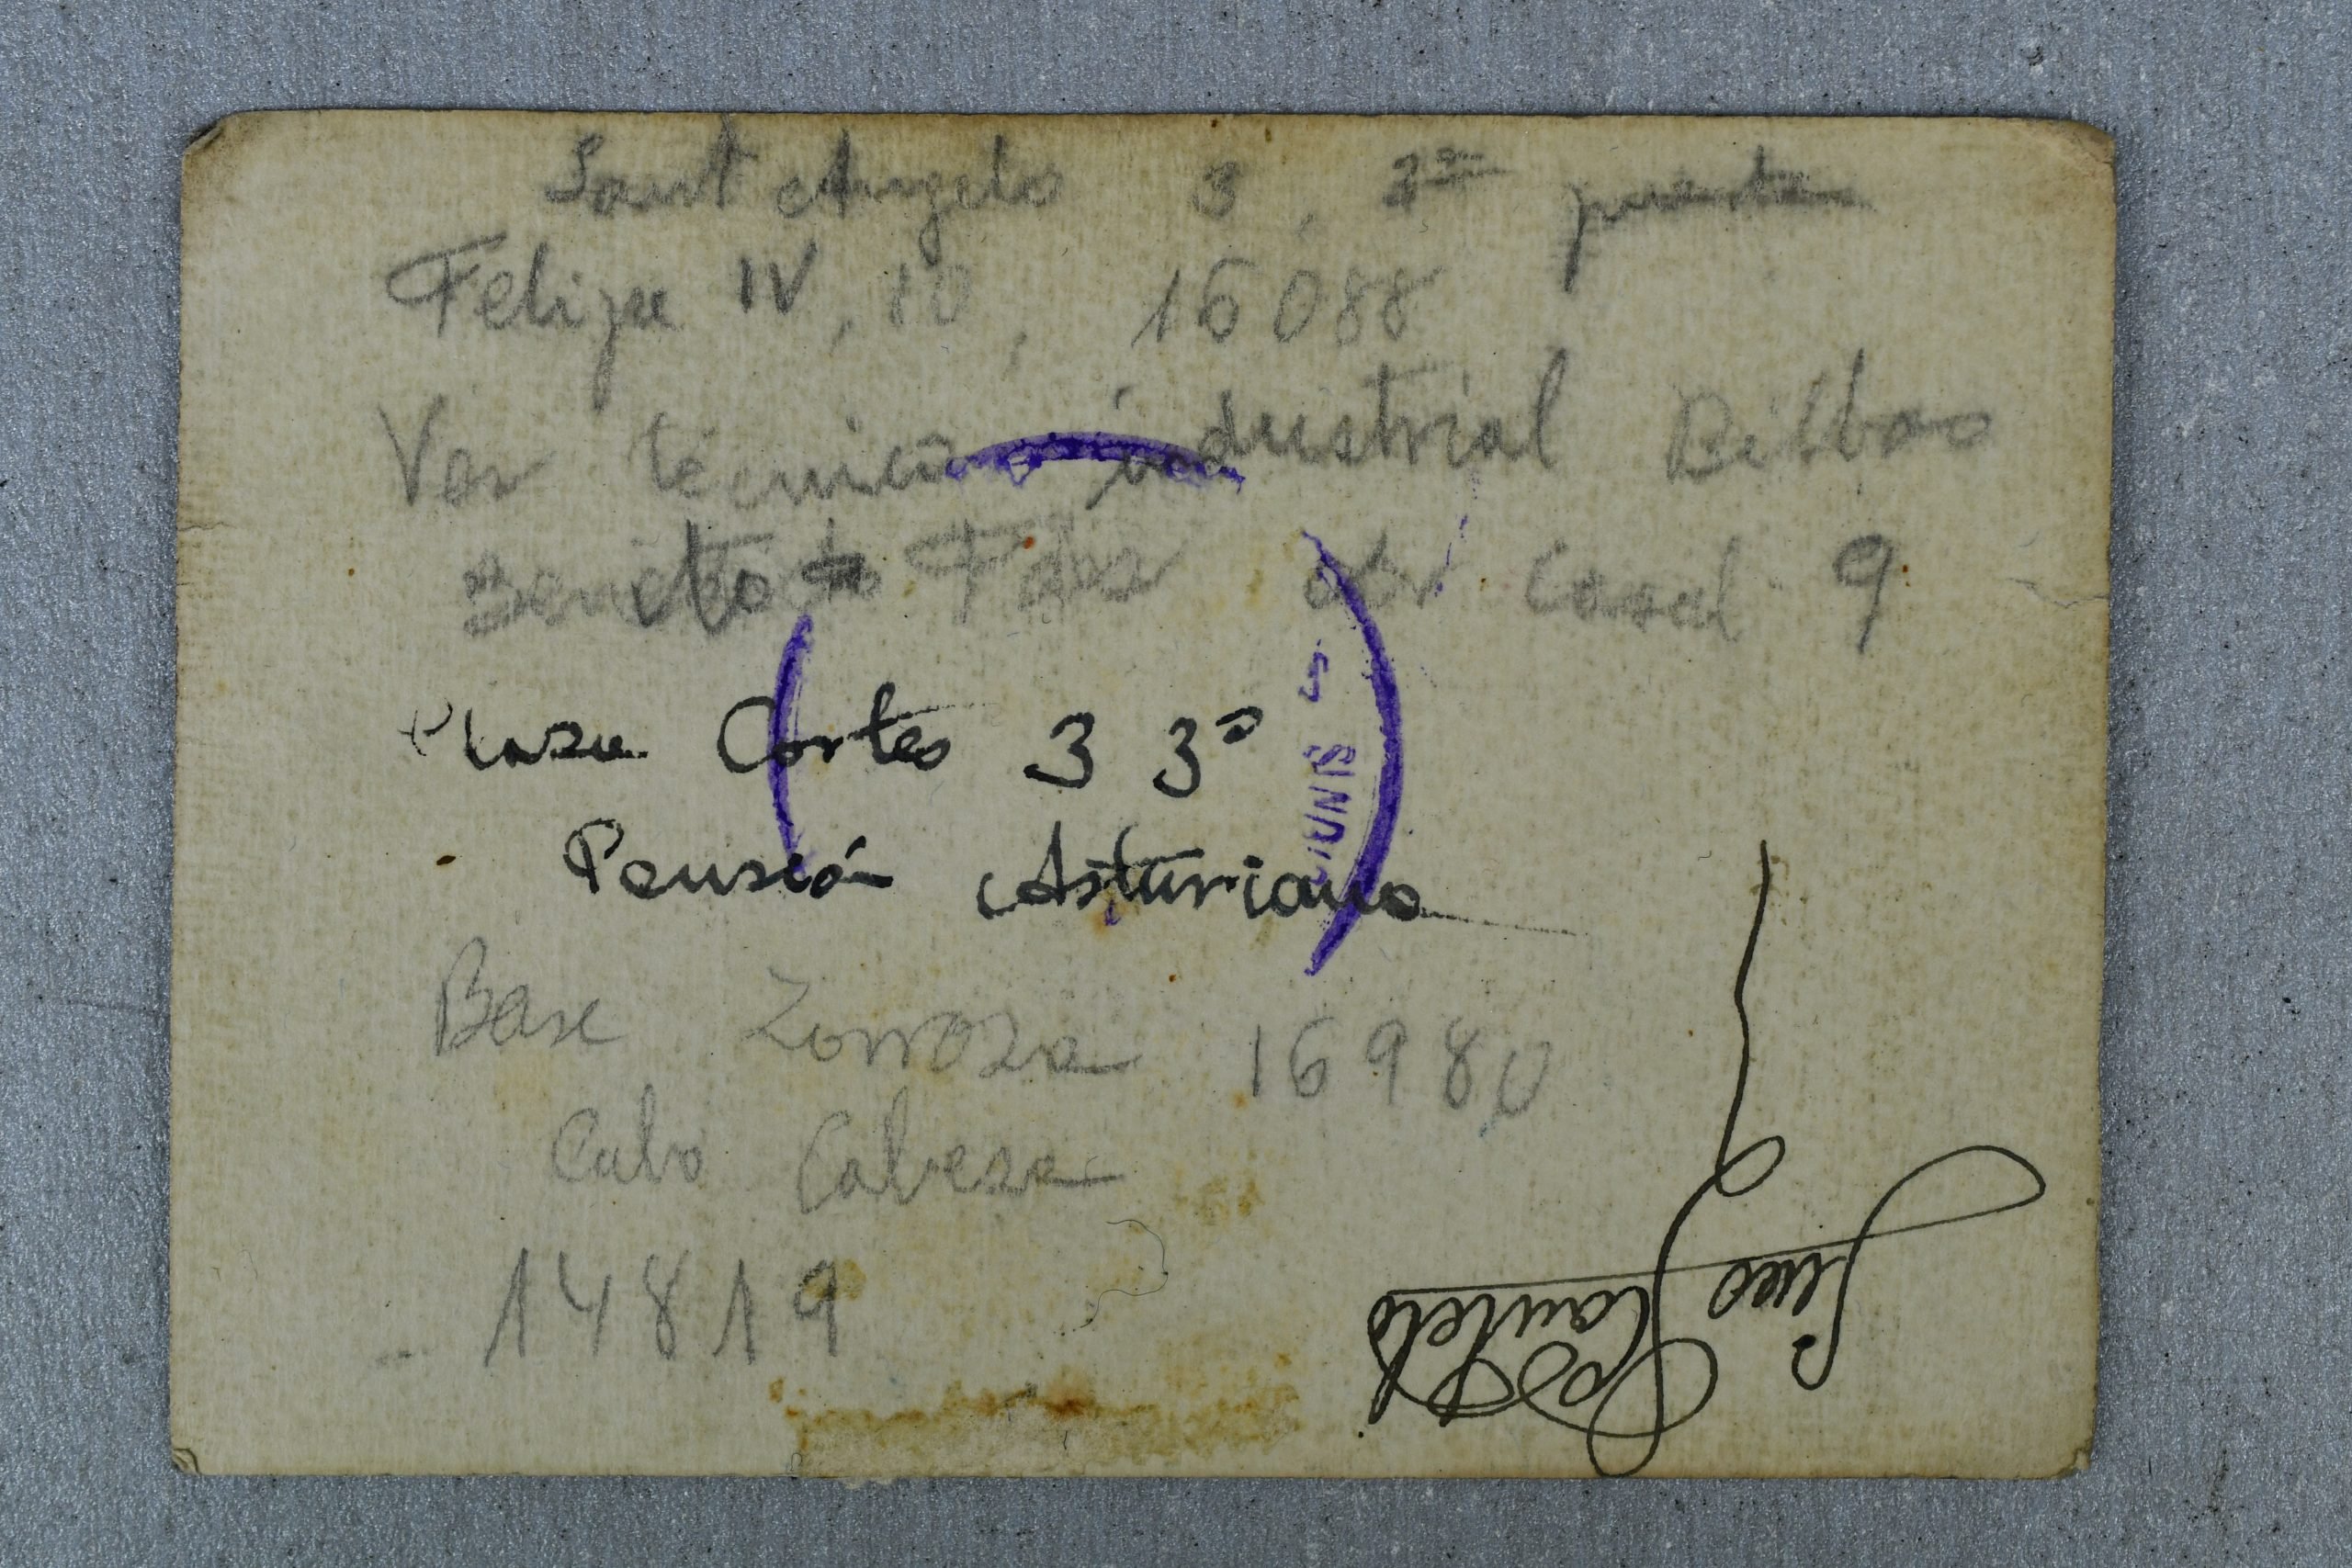 Sant Angelo 3, 3º puerta
Felipe IV, 10, 16088
Ver técnico industrial Bilbao
Benito Fdez del Casal 9
Plaza Cortes 3 3º
Pensión Asturiana
Base Zorroza 16980
Cabo Cabeza
14819